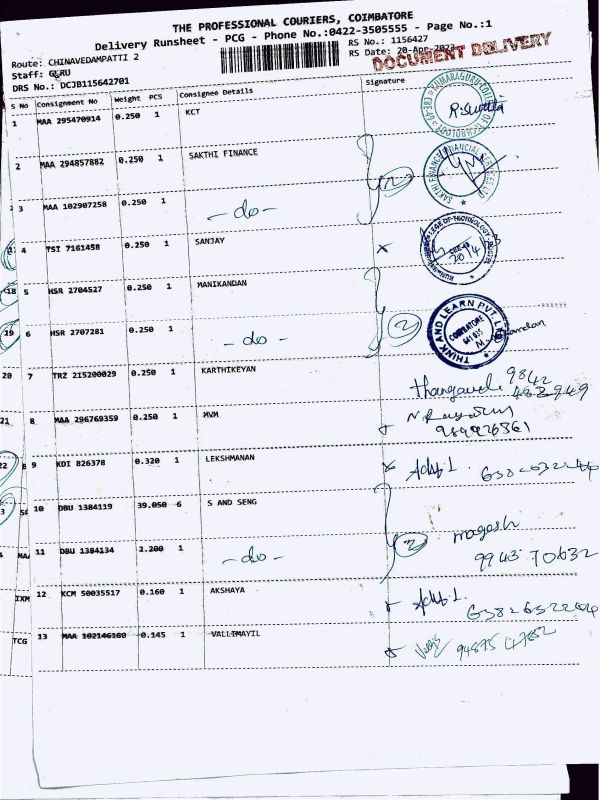 THE PROFESSIONAL COURIERS, COIMBATORE
Delivery Runsheet - PCG - Phone No.:0422-3505555 - Page No.:1
Route: CHINAVEDAMPATTI 2 RS No.: 1156427
Staff: GURU RS Date: 20-Apr-2023
DRS No.: DCJB115642701 DOCUMENT DELIVERY
S No Consignment No Weight PCS Consignee Details Signature
1 MAA 295470914 0.250 1 KCT
2 MAA 294857882 0.250 1 SAKTHI FINANCE
3 MAA 102907258 0.250 1 -do- 2
4 TSI 7161458 0.250 1 SANJAY x
5 HSR 2704527 0.250 1 MANIKANDAN
6 HSR 2707281 0.250 1 -do- 2 THINK AND LEARN PVT. LTD COIMBATORE
7 TRZ 215200029 0.250 1 KARTHIKEYAN thangavel 9842
8 MAA 296769359 0.250 1 MVM
9 KDI 826378 0.320 1 LEKSHMANAN
10 DBU 1384119 39.050 6 S AND SENG
magesh
11 DBU 1384134 2.200 1 -do- 2 99437 70632
12 KCM 50035517 0.160 1 AKSHAYA
13 MAA 102146180 0.145 1 VALLIMAYIL
18
19
20
21
22
IXM
TCG